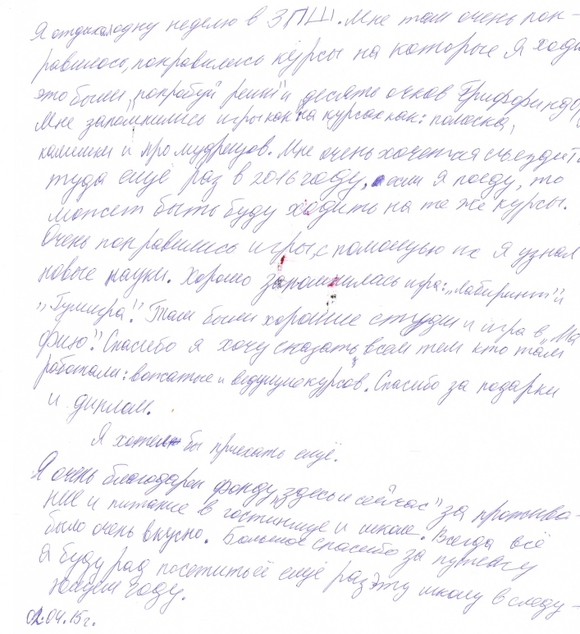 Я отдыхал одну неделю в ЗПШ. Мне там очень пон-
равилось, понравились курсы на которые я ходил
это были „попробуй реши" и десять очков Гриффиндору
Мне запомнились игры как на курсах как: полоска,
камешки и про мудрецов. Мне очень хочется съездить
туда ещё раз в 2016 году, если я поеду, то
может быть буду ходить на те же курсы.
Очень понравились игры, с помощью их я узнал
новые науки. Хорошо запомнилась игра: „Лабиринт" и
Там были хорошие студии и игра в „Ма
фию". Спасибо я хочу сказать всем тем кто там
работали: вожатые и ведущие курсов. Спасибо за подарки
и диплом.
Я хотел бы приехать ещё.
Я очень благодарен фонду „здесь и сейчас" за прожива-
ние и питание в гостинице и школе. Всегда всё
было очень вкусно. Большое спасибо за путёвку
я буду рад посетить ещё раз эту школу в следу-
ющем году.
02.04.15г.